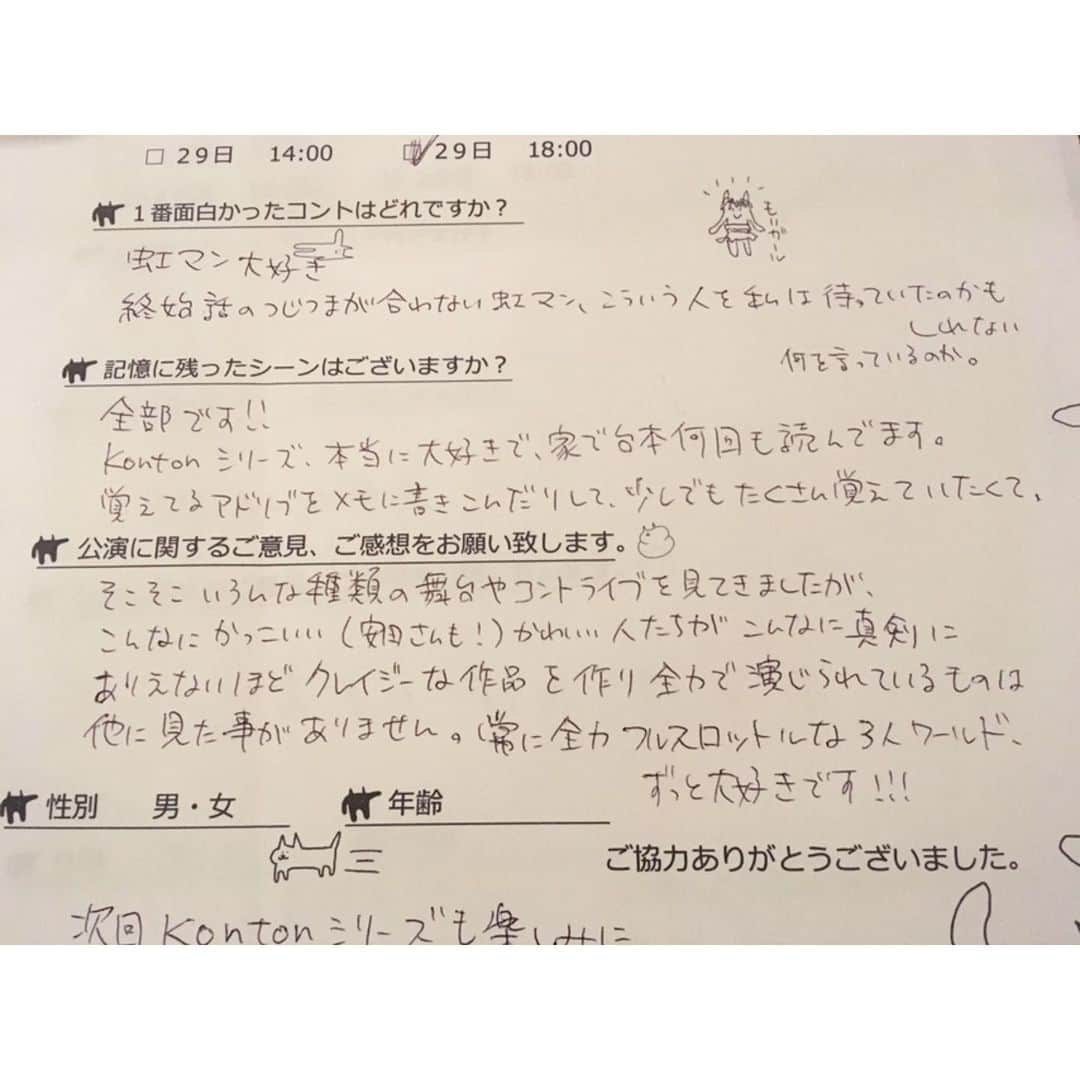 □ 29日 14:00 □ 29日 18:00
1番面白かったコントはどれですか？
もいがール
虹マン 大好き
終始話のつじつまが合わない虹マン、こういう人を私は待っていたのかも
しれない
何を言っているのか。
記憶に残ったシーンはございますか？
全部です!!
Kontonシリーズ、本当に大好きで、家で台本何回も読んでます。
覚えてるアドリブをメモに書きこんだりして、少しでもたくさん覚えていたくて、
公演に関するご意見、ご感想をお願い致します。
そこそこいろんな種類の舞台やコントライブを見てきましたが、
こんなにかっこいい(安田さんも!)かわいい人たちがこんなに真剣に
ありえないほどクレイジーな作品を作り全力で演じられているものは
他に見た事がありません。常に全力フルスロットルな3人ワールド、
ずっと大好きです!!!
性別 男・女 年齢
ご協力ありがとうございました。
次回Kontonシリーズも楽しみに